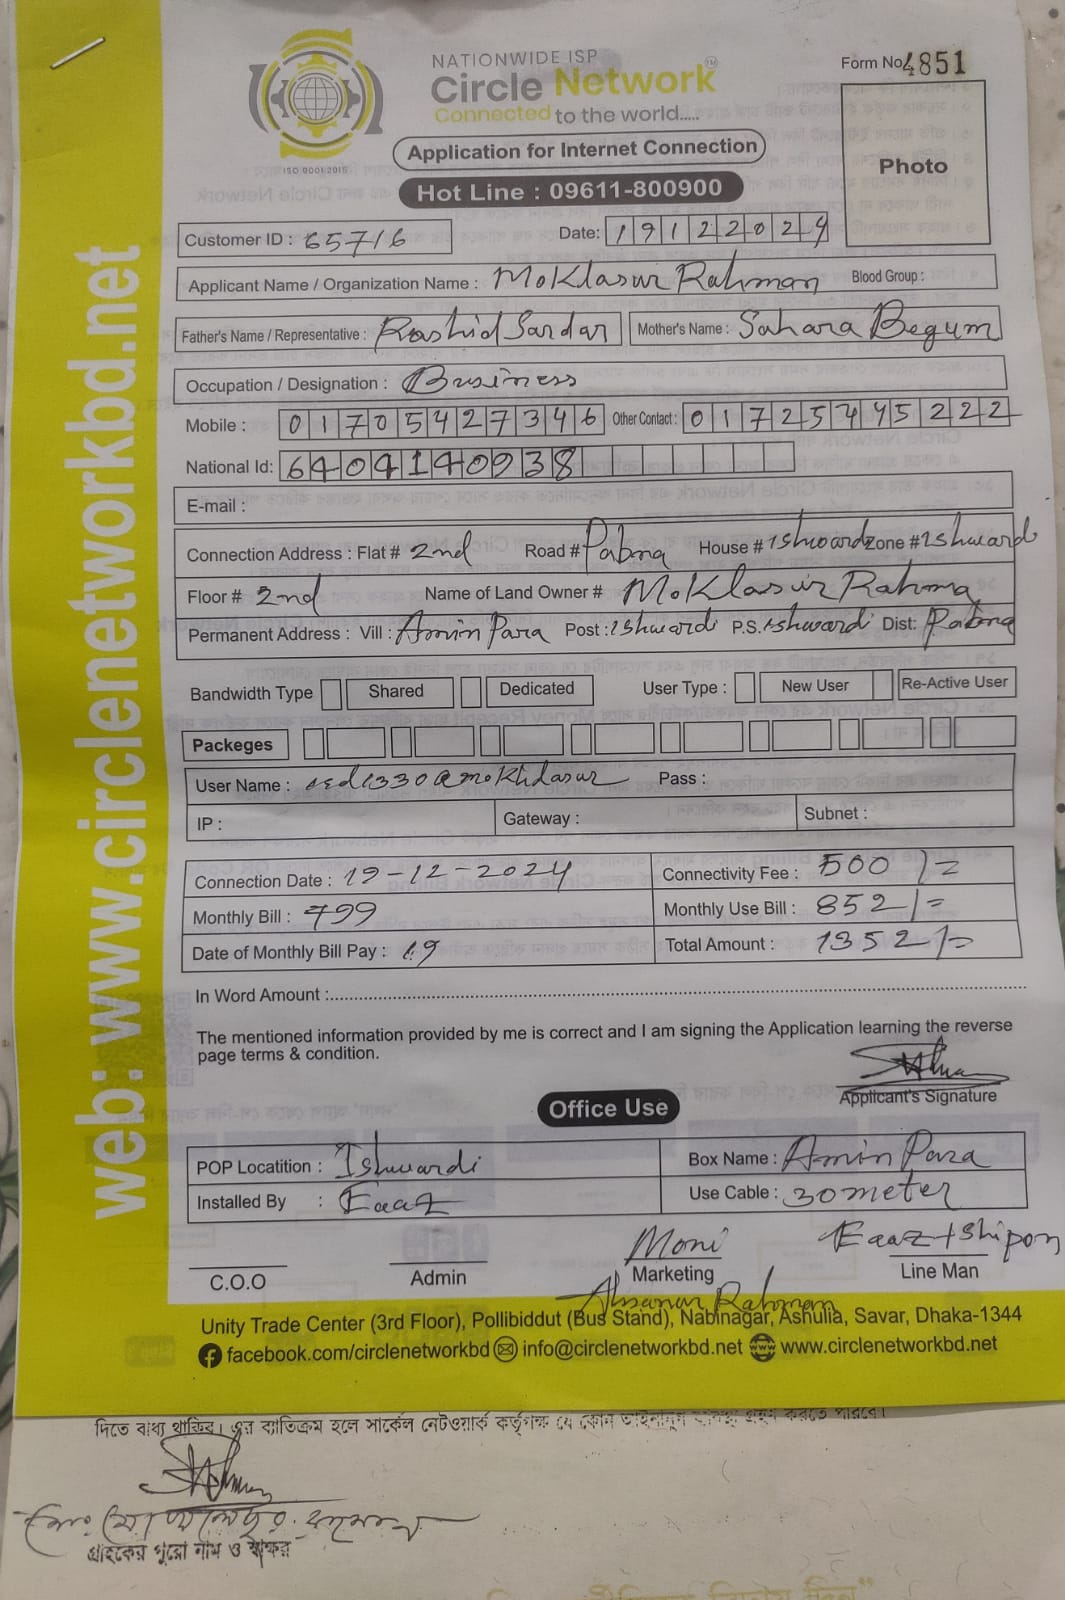 NATIONWIDE ISP
Circle Network
Connected to the world.....
ISO 9001:2015
Form No 4851
Photo
Application for Internet Connection
Hot Line : 09611-800900
Customer ID : 65716 Date: 19122024
Applicant Name / Organization Name : Moklasur Rahman Blood Group :
Father's Name / Representative : Rashid Sardar Mother's Name : Sahara Begum
Occupation / Designation : Business
Mobile : 01705427346 Other Contact : 01725445222
National Id: 6404140938
E-mail :
Connection Address : Flat # 2nd Road # Pabna House # Ishwardi Zone # Ishwardi
Floor # 2nd Name of Land Owner # Moklasur Rahma
Permanent Address : Vill : Amin Para Post : Ishwardi P.S. Ishwardi Dist: Pabna
Bandwidth Type Shared Dedicated User Type : New User Re-Active User
Packeges
User Name : isd1330@mokhlasur Pass :
IP : Gateway : Subnet :
Connection Date : 19-12-2024 Connectivity Fee : 500/=
Monthly Bill : 799 Monthly Use Bill : 852/=
Date of Monthly Bill Pay : 19 Total Amount : 1352/=
In Word Amount :
The mentioned information provided by me is correct and I am signing the Application learning the reverse
page terms & condition.
Applicant's Signature
Office Use
POP Locatition : Ishwardi Box Name : Amin Para
Installed By : Eaaz Use Cable : 30 meter
Moni Eaaz + Shipon
C.O.O Admin Marketing Line Man
Ahsanur Rahman
Unity Trade Center (3rd Floor), Pollibiddut (Bus Stand), Nabinagar, Ashulia, Savar, Dhaka-1344
facebook.com/circlenetworkbd info@circlenetworkbd.net www.circlenetworkbd.net
web: www.circlenetworkbd.net
দিতে বাধ্য থাকিব। এর ব্যতিক্রম হলে সার্কেল নেটওয়ার্ক কর্তৃপক্ষ যে কোন আইনানুগ ব্যবস্থা গ্রহন করতে পারবে।
গ্রাহকের পুরো নাম ও স্বাক্ষর